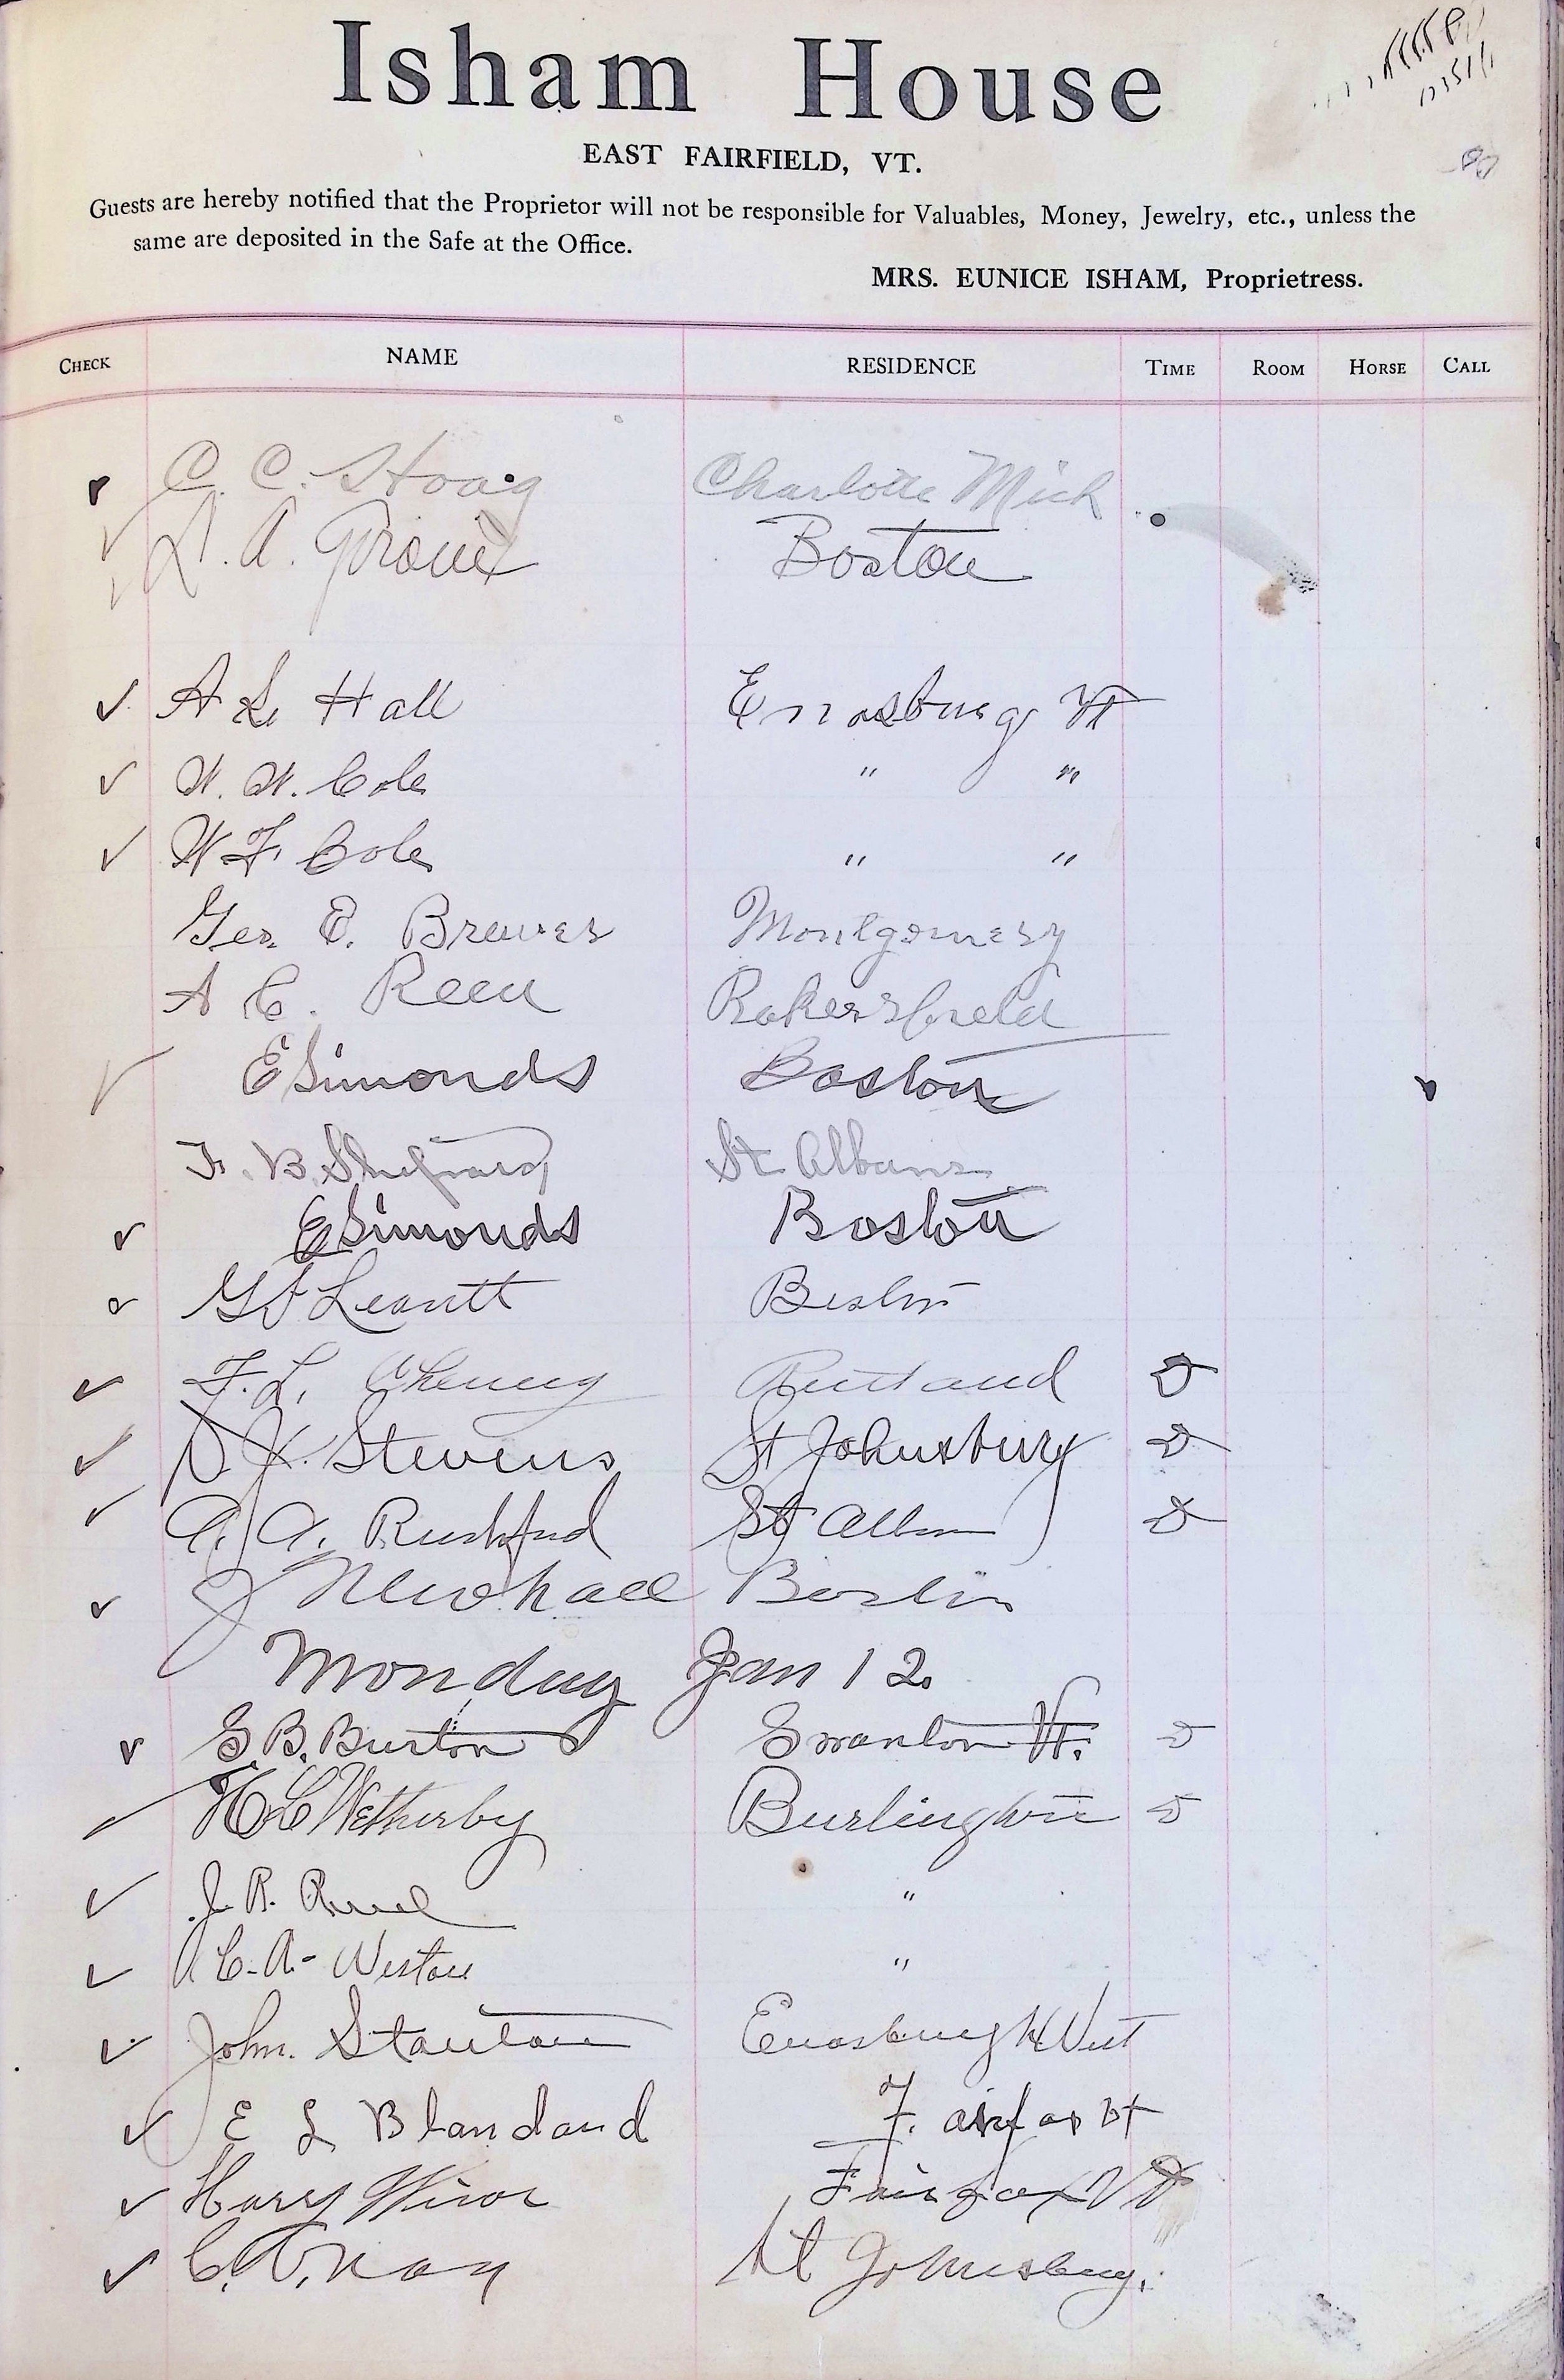 Isham House
EAST FAIRFIELD, VT.
Guests are hereby notified that the Proprietor will not be responsible for Valuables, Money, Jewelry, etc., unless the
same are deposited in the Safe at the Office.
MRS. EUNICE ISHAM, Proprietress.
CHECK NAME RESIDENCE TIME ROOM HORSE CALL
✓ C. C. Hoag Charlotte Mich
✓ A. Boston
✓ A L Hall Enosburg Vt
✓ W. W. Cole " "
✓ W F. Cole " "
Geo. E. Brewer Montgomery
A C. Reed Bakersfield
✓ E Simonds Boston
F. B. Shepard St Albans
✓ E Simonds Boston
✓ Leavitt Boston
✓ F. L. Cheney Rutland D
✓ Stevens St Johnsbury D
✓ A. A. Rushford St Albans D
✓ J Newhall Boston
Monday Jan 12
✓ G. B. Burton Swanton Vt. D
✓ H C Wetherby Burlington D
✓ J. R. "
✓ C. A. Weston "
✓ John. Stanton Enosburgh
✓ E L Blandard F. airfax Vt
✓ Harry Fairfax Vt
✓ C. St Johnsbury.